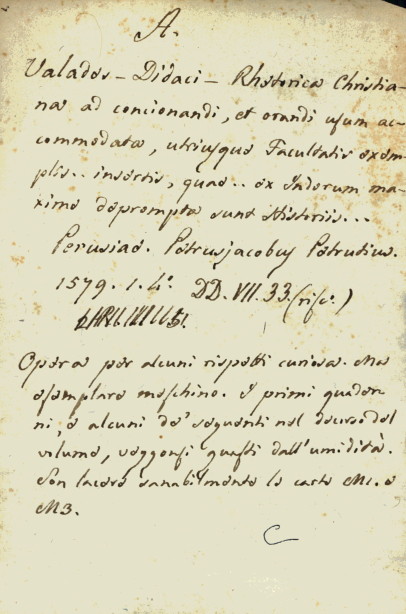 A.
Valades - Didaci - Rhetorica Christia-
nae ad concionandi, et orandi usum ac-
commodata, utriusque Facultatis exem-
plis.. insertis, quae.. ex Indorum ma-
xime deprompta sunt Historiis...
Perusiae. Petrusjacobus Petrutius.
1579. 1. 4.° DD. VII. 33. (risc.°)
Opera per alcuni rispetti curiosa. Ma
esemplare meschino. I primi quader-
ni, e alcuni de' seguenti nel decorso del
volume, veggonsi guasti dall'umidità.
Son lacere sanabilmente le carte M1. e
M3.
C